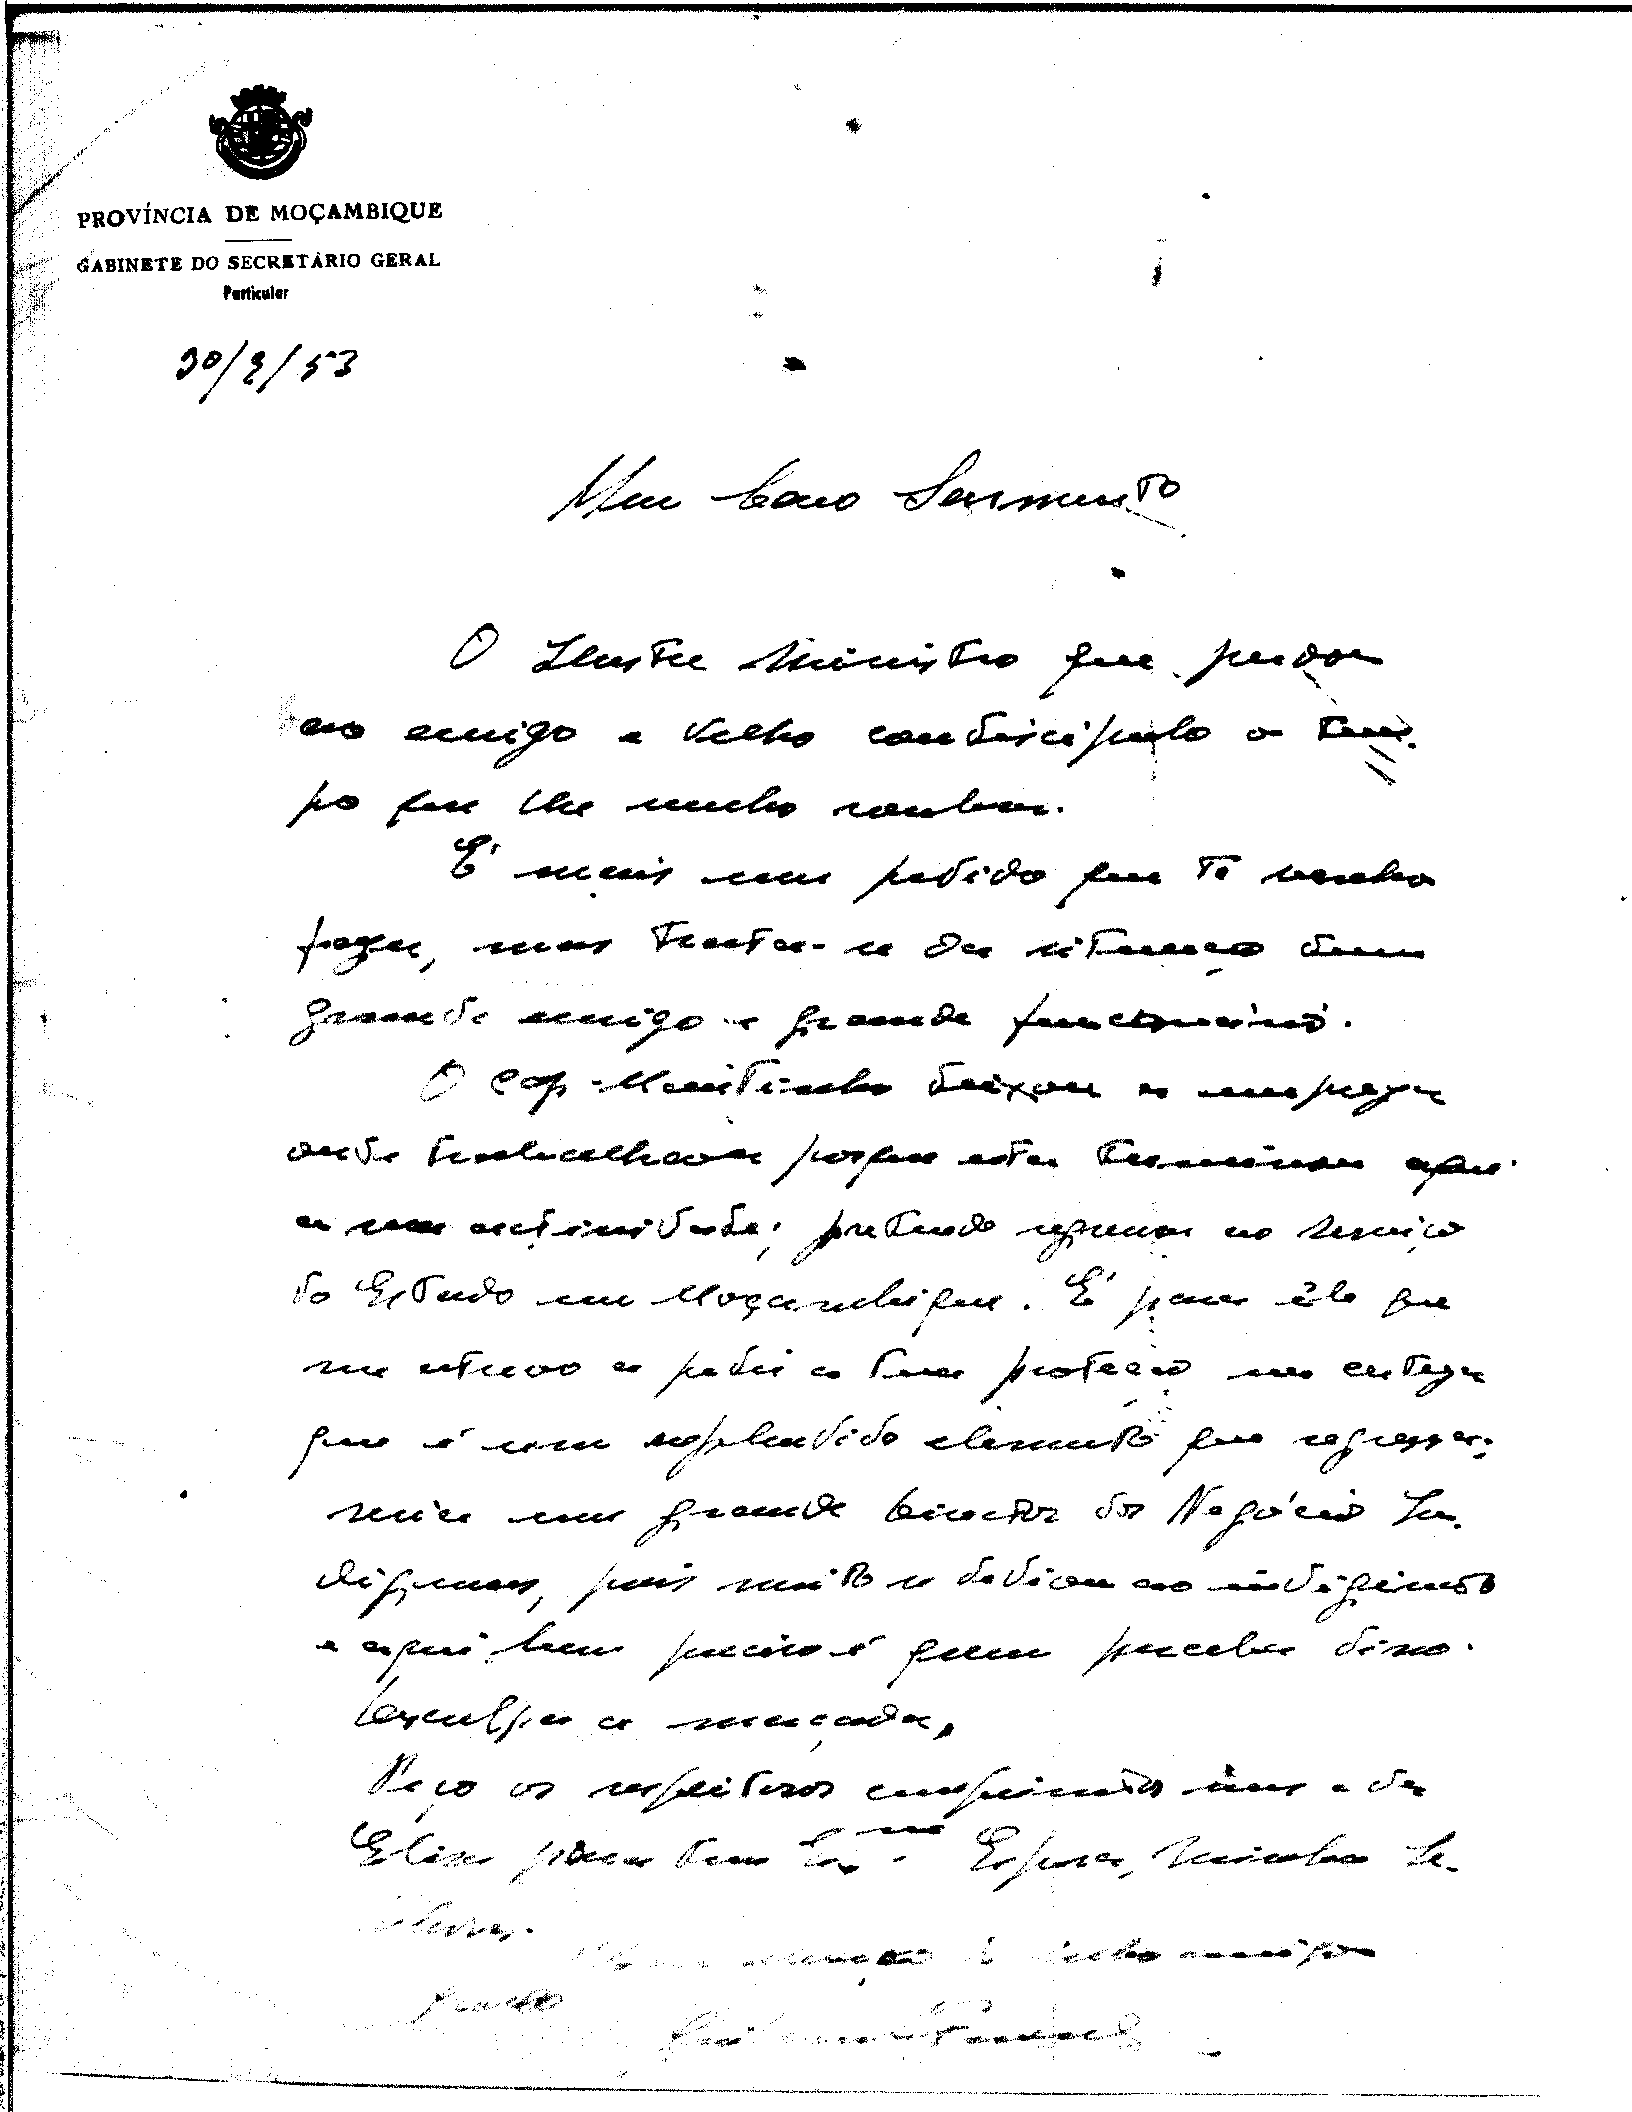 PROVÍNCIA DE MOÇAMBIQUE
GABINETE DO SECRETÁRIO GERAL
Particular
30/3/53
Meu Caro Sarmento
O Ilustre Ministro que perdoe
ao amigo e velho condiscípulo o tem-
po que lhe venho roubar.
É mais um pedido que te venho
fazer, mas trata-se da situação dum
grande amigo e grande funcionário.
O Cap. Moutinho deixou a empreza
onde trabalhava porque esta terminou aqui
a sua actividade; pretende regressar ao serviço
do Estado em Moçambique. É para êle que
me atrevo a pedir a tua proteção na certeza
que é um esplendido elemento que regressa;
seria um grande Director dos Negócios In-
digenas, pois muito se dedicou ao indigenato
e aqui bem preciso é quem perceba disso.
Desculpa a maçada.
Peço os respeitosos cumprimentos meus e da
Elisa para tua Exma Esposa, Minha Se-
nhora.
velho amigo
grato